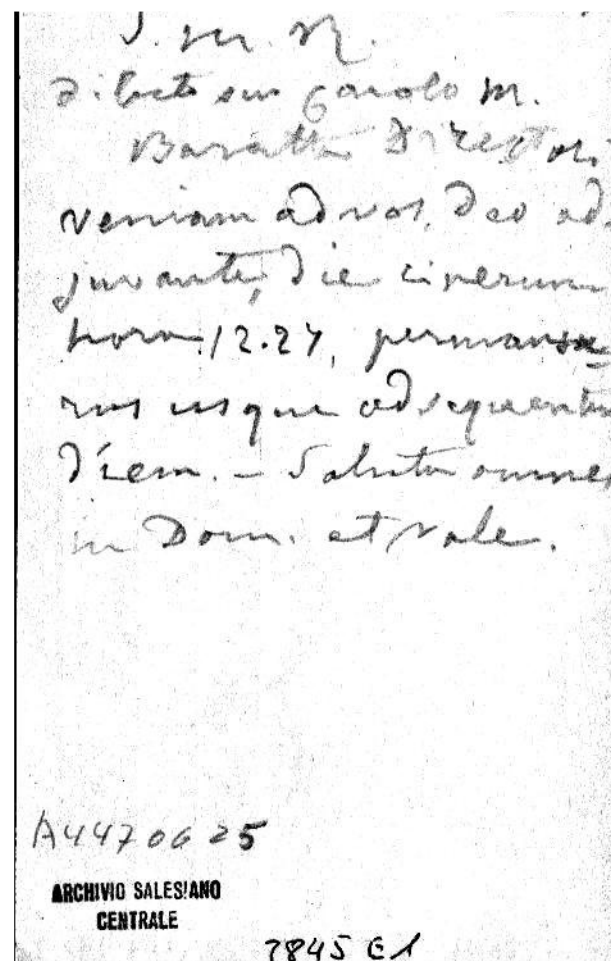 J. M. R.
Dilecto suo Carolo M.
Baratta Directori
Veniam ad vos, Deo ad-
juvante, die cinerum
hora 12.27, permansu=
rus usque ad sequentem
diem. – Saluta omnes
in Dom. et vale.
A4470625
ARCHIVIO SALESIANO
CENTRALE
2845 E1